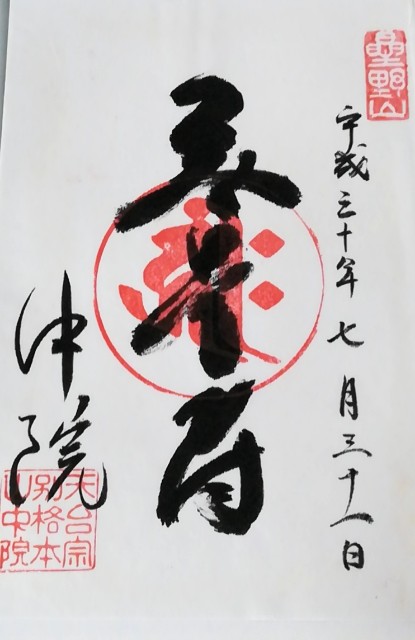 星野山
平成三十年七月三十一日
無量寿
中院
天台宗
別格本
山中院